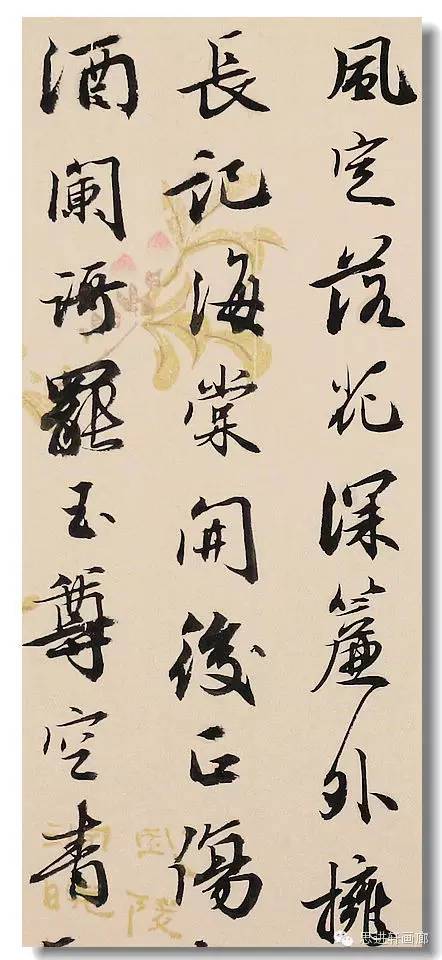 風定落花深簾外擁
長記海棠開後正傷
酒闌謌罷玉尊空青
思进轩画廊